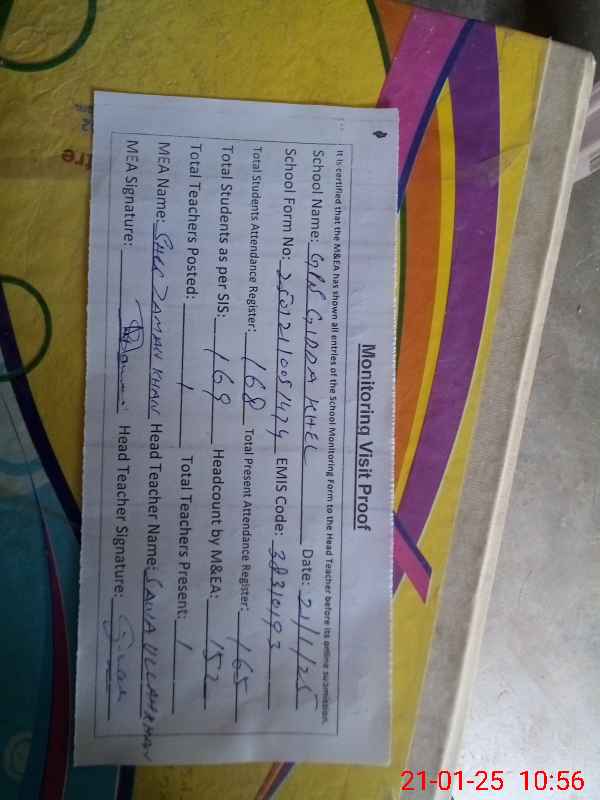 Monitoring Visit Proof
It is certified that the M&EA has shown all entries of the School Monitoring Form to the Head Teacher before its online submission.
School Name: GPS GIDDA KHEL Date: 21/1/25
School Form No: 2501211051429 EMIS Code: 38310193
Total Students Attendance Register: 168 Total Present Attendance Register: 165
Total Students as per SIS: 169 Headcount by M&EA: 152
Total Teachers Posted: 1 Total Teachers Present: 1
MEA Name: SHER ZAMAN KHAN Head Teacher Name: SANAULLAH KHAN
MEA Signature: Head Teacher Signature:
21-01-25 10:56